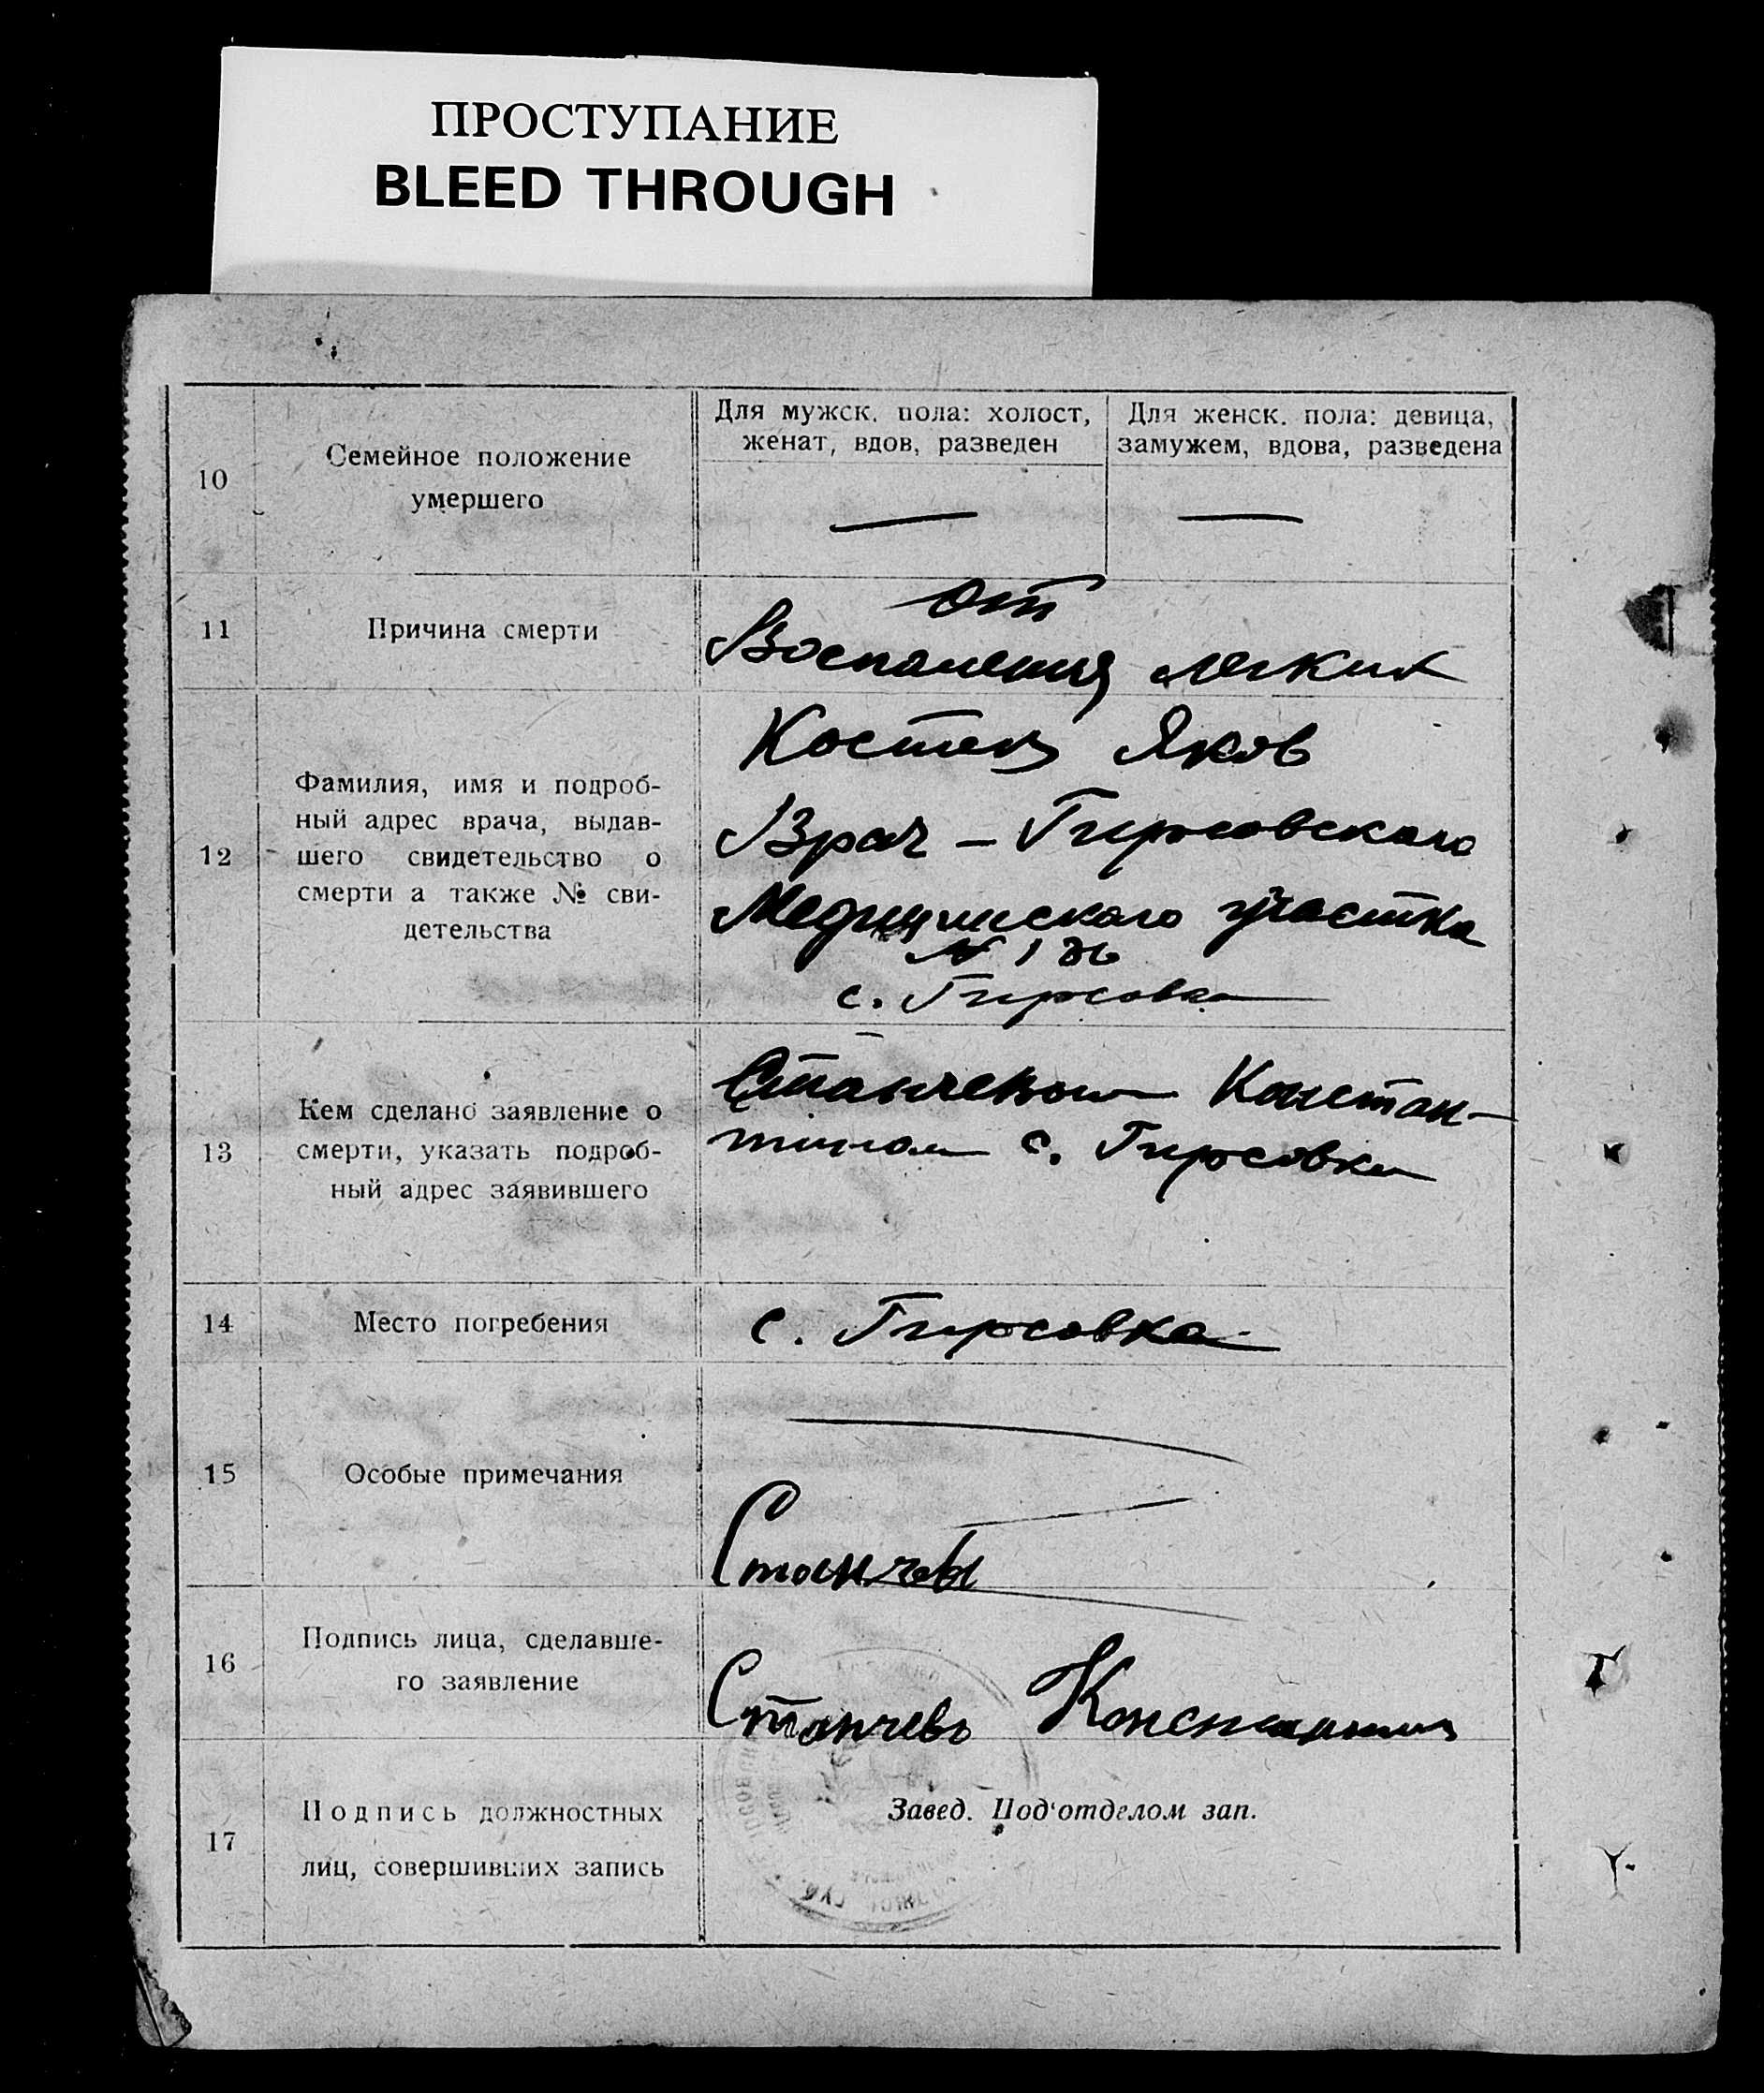 ПРОСТУПАНИЕ
BLEED THROUGH
10
Семейное положение
умершего
Для мужск. пола: холост,
женат, вдов, разведен
Для женск. пола: девица,
замужем, вдова, разведена
—
—
11
Причина смерти
от
Воспаления легких
12
Фамилия, имя и подроб-
ный адрес врача, выдав-
шего свидетельство о
смерти а также № сви-
детельства
Яков
Врач – Гирсовского
Медицинского участка
с. Гирсовка
13
Кем сделано заявление о
смерти, указать подроб-
ный адрес заявившего
Станчевым Констан-
тином с. Гирсовка
14
Место погребения
с. Гирсовка
15
Особые примечания
16
Подпись лица, сделавше-
го заявление
Станчевъ Константин
17
Подпись должностных
лиц, совершивших запись
Завед. Под‘отделом зап.